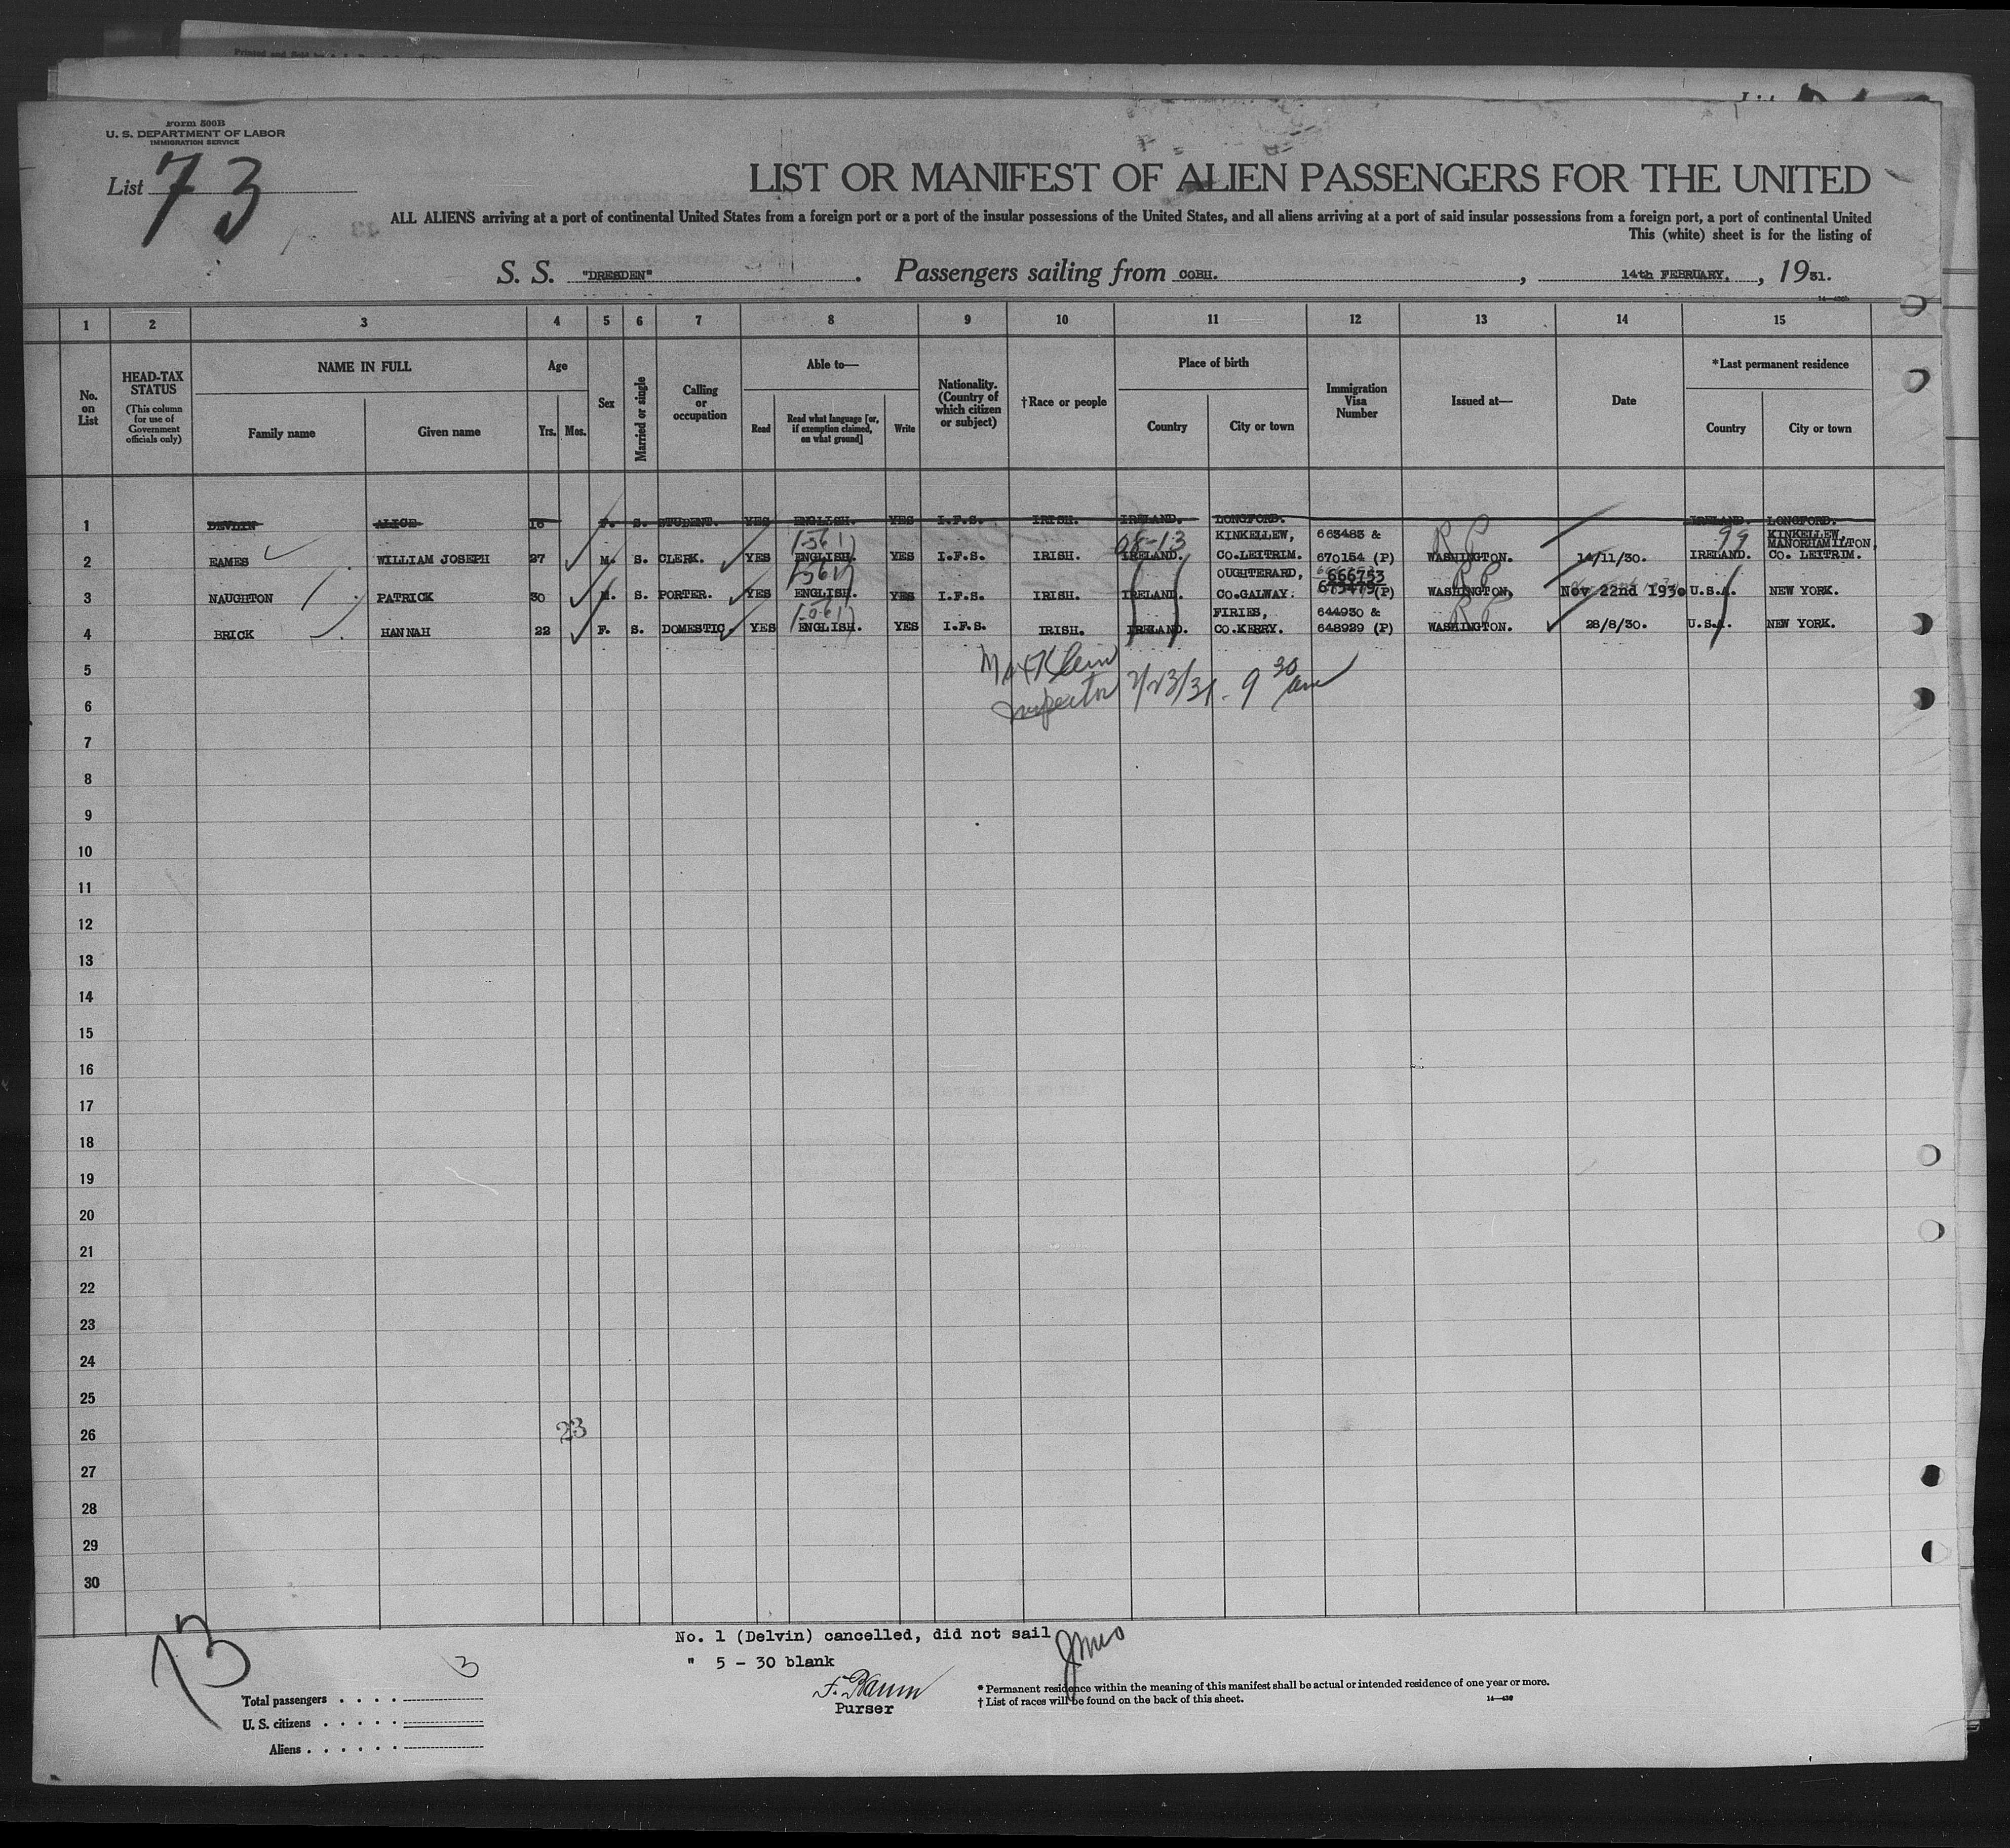 Form 500B
U. S. DEPARTMENT OF LABOR
IMMIGRATION SERVICE
List 73
LIST OR MANIFEST OF ALIEN PASSENGERS FOR THE UNITED
ALL ALIENS arriving at a port of continental United States from a foreign port or a port of the insular possessions of the United States, and all aliens arriving at a port of said insular possessions from a foreign port, a port of continental United
This (white) sheet is for the listing of
S. S. "DRESDEN". Passengers sailing from COBH. , 14th FEBRUARY. , 1931.
1 2 3 4 5 6 7 8 9 10 11 12 13 14 15
No. on List
HEAD-TAX STATUS (This column for use of Government officials only)
NAME IN FULL
Family name Given name
Age
Yrs. Mos.
Sex
Married or single
Calling or occupation
Able to—
Read
Read what language [or, if exemption claimed, on what ground]
Write
Nationality. (Country of which citizen or subject)
†Race or people
Place of birth
Country City or town
Immigration Visa Number
Issued at—
Date
*Last permanent residence
Country City or town
1 DEVLIN ALICE 18 F. S. STUDENT. YES ENGLISH. YES I.F.S. IRISH. IRELAND. LONGFORD. IRELAND. LONGFORD.
08-13 KINKELLEW, 663483 & 99 KINKELLEW, MANORHAMILTON,
2 EAMES WILLIAM JOSEPH 27 M. S. CLERK. YES ENGLISH. YES I.F.S. IRISH. IRELAND. CO.LEITRIM. 670154 (P) WASHINGTON. 14/11/30. IRELAND. CO. LEITRIM.
OUGHTERARD, 666753
3 NAUGHTON PATRICK 30 M. S. PORTER. YES ENGLISH. YES I.F.S. IRISH. IRELAND. CO.GALWAY. 673479 (P) WASHINGTON, Nov 22nd 1930 U.S.A. NEW YORK.
FIRIES, 644930 &
4 BRICK HANNAH 22 F. S. DOMESTIC. YES ENGLISH. YES I.F.S. IRISH. IRELAND. CO.KERRY. 648929 (P) WASHINGTON. 28/8/30. U.S.A. NEW YORK.
5 Max Klein
6 Inspector 2/23/31 - 9 30 am
7
8
9
10
11
12
13
14
15
16
17
18
19
20
21
22
23
24
25
26 23
27
28
29
30
73
No. 1 (Delvin) cancelled, did not sail
" 5 - 30 blank
F. Baum
Purser
Total passengers . . . . 3
U. S. citizens . . . . .
Aliens . . . . . .
* Permanent residence within the meaning of this manifest shall be actual or intended residence of one year or more.
† List of races will be found on the back of this sheet.
14—430